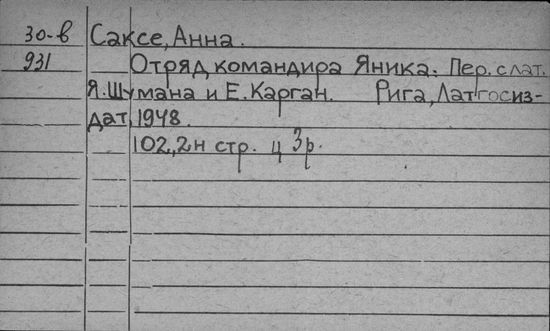 30-в Саксе, Анна.
931 Отряд командира Яника. Пер. с лат.
Я. Шумана и Е. Карган. Рига, Латгосиз-
дат, 1948.
102, 2н стр. ц 3р.